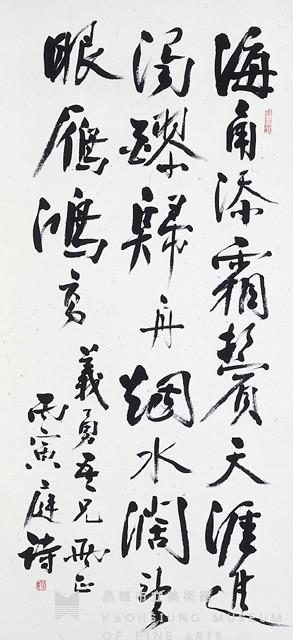 海角添霜鬢天涯進
濁醪歸舟烟水闊望
眼雁鴻高
義勇吾兄雅正
丙寅庭詩
高雄市立美術館
KAOHSIUNG MUSEUM
OF FINE ARTS